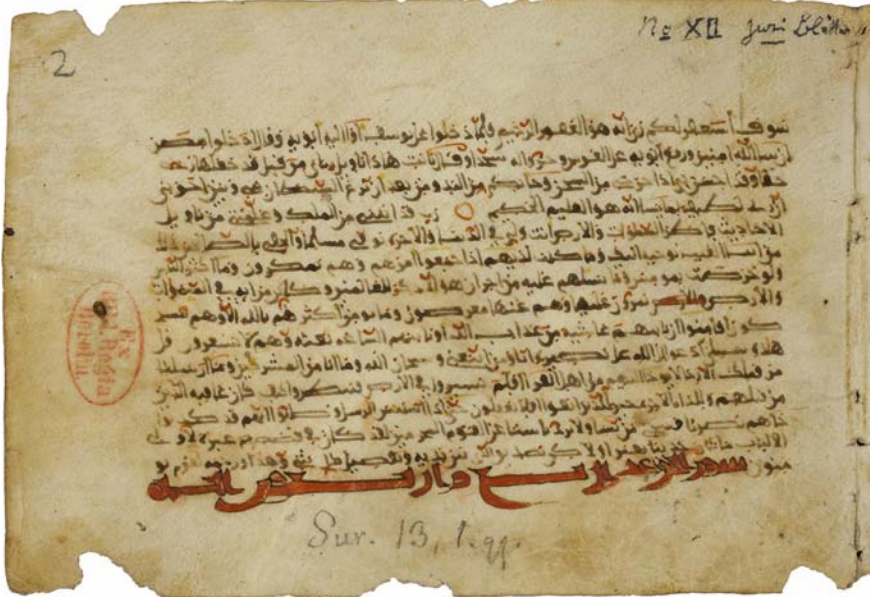 No XII zwei Blätter
2
سوف استغفر لكم ربي انه هو الغفور الرحيم فلما دخلوا على يوسف اوا اليه ابويه وقال ادخلوا مصر
ان شا الله امنين ورفع ابويه على العرش وخروا له سجدا وقال يابت هاذا تاويل رياي من قبل قد جعلها ربي
حقا وقد احسن بي اذ اخرجني من السجن وجا بكم من البدو من بعد ان نزغ الشيطان بيني وبين اخوتي
ان ربي لطيف لما يشا انه هو العليم الحكيم رب قد اتيتني من الملك وعلمتني من تاويل
الاحاديث فاطر السموات والارض انت وليي في الدنيا والاخرة توفني مسلما والحقني بالصالحين ذلك
من انبا الغيب نوحيه اليك وما كنت لديهم اذ اجمعوا امرهم وهم يمكرون وما اكثر الناس
ولو حرصت بمومنين وما تسلهم عليه من اجر ان هو الا ذكر للعالمين وكاين من اية في السموات
والارض يمرون عليها وهم عنها معرضون وما يومن اكثرهم بالله الا وهم مشر
كون افامنوا ان تاتيهم غاشية من عذاب الله او تاتيهم الساعة بغتة وهم لا يشعرون قل
هذه سبيلي ادعوا الى الله على بصيرة انا ومن اتبعني وسبحان الله وما انا من المشركين وما ارسلنا
من قبلك الا رجالا يوحى اليهم من اهل القرى افلم يسيروا في الارض فينظروا كيف كان عاقبة الذين
من قبلهم ولدار الاخرة خير للذين اتقوا افلا تعقلون حتى اذا استيس الرسل وظنوا انهم قد كذبوا
جاهم نصرنا فنجي من نشا ولا يرد باسنا عن القوم المجرمين لقد كان في قصصهم عبرة لاولي
الالباب ما كان حديثا يفترى ولاكن تصديق الذي بين يديه وتفصيل كل شي وهدى ورحمة لقوم يو
منون سورة الرعد اربع واربعون اية
Ex Bibl. Regia Berolin.
Sur. 13, 1. qq.